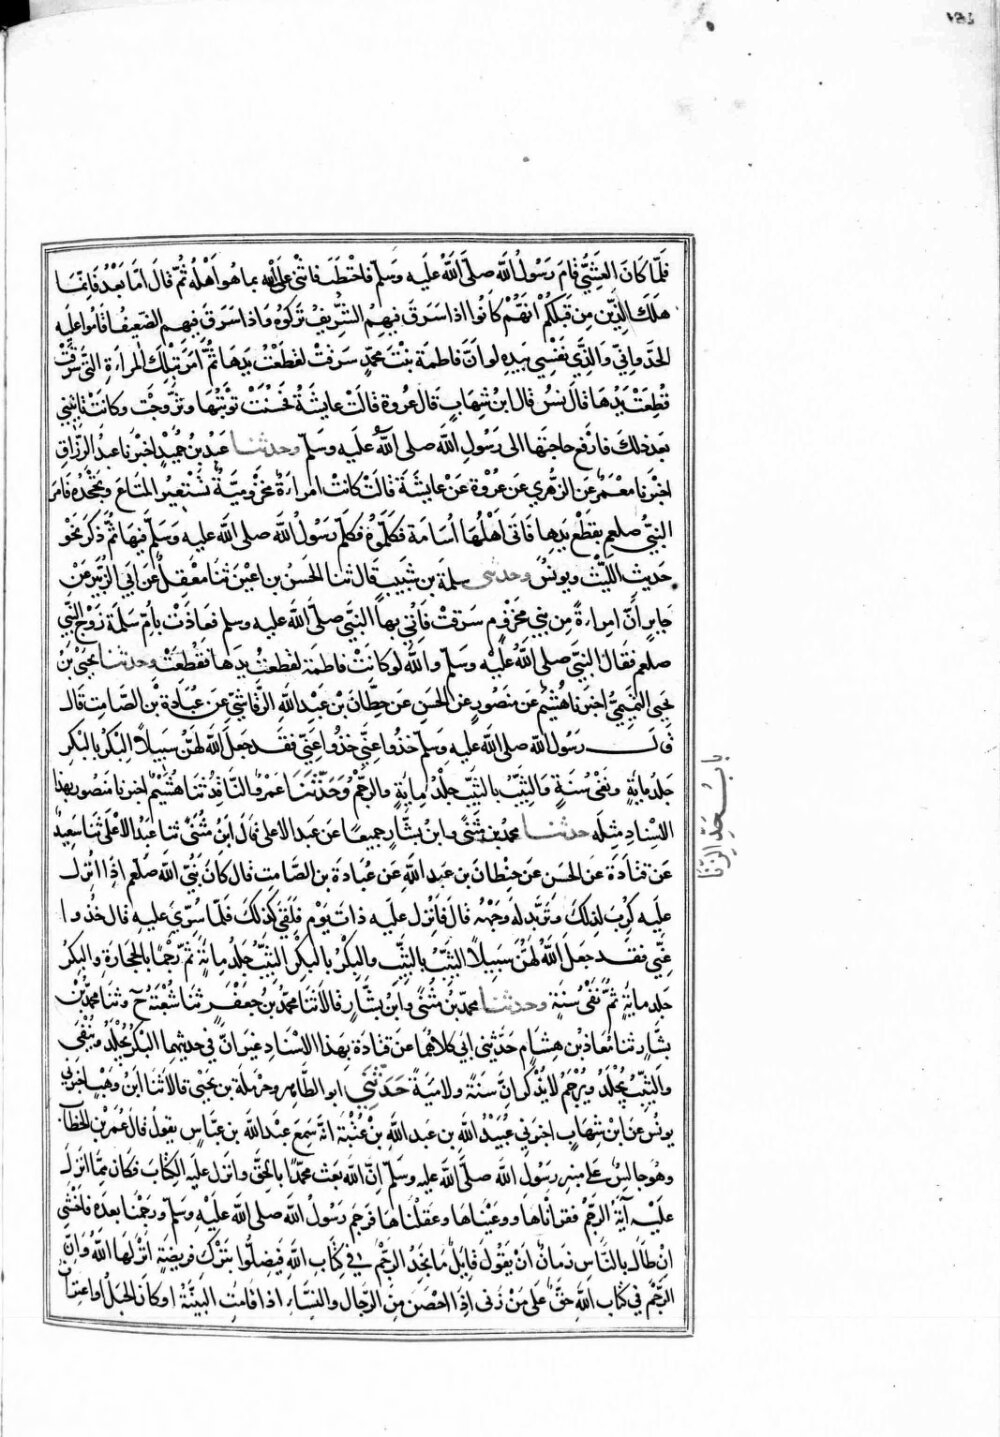 فلما كان العشي قام رسول الله صلى الله عليه وسلم فاختطب فاثنى على الله بما هو اهله ثم قال اما بعد فانما
هلك الذين من قبلكم انهم كانوا اذا سرق فيهم الشريف تركوه واذا سرق فيهم الضعيف اقاموا عليه
الحد واني والذي نفسي بيده لو ان فاطمة بنت محمد سرقت لقطعت يدها ثم امر بتلك المراءة التي سرقت
قطعت يدها قال يونس قال ابن شهاب قال عروة قالت عايشة فحسنت توبتها وتزوجت وكانت تاتيني
بعد ذلك فارفع حاجتها الى رسول الله صلى الله عليه وسلم وحدثنا عبد بن حميد اخبرنا عبد الرزاق
اخبرنا معمر عن الزهري عن عروة عن عايشة قالت كانت امراءة مخزومية تستعير المتاع وتجحده فامر
النبي صلعم بقطع يدها فاتى اهلها اسامة فكلموه فكلم رسول الله صلى الله عليه وسلم فيها ثم ذكر نحو
حديث الليث ويونس وحدثني سلمة بن شبيب قال ثنا الحسن بن اعين ثنا معقل عن ابي الزبير عن
جابر ان امراءة من بني مخزوم سرقت فاتي بها النبي صلى الله عليه وسلم فعاذت بام سلمة زوج النبي
صلعم فقال النبي صلى الله عليه وسلم والله لو كانت فاطمة لقطعت يدها فقطعت وحدثنا يحيى بن
يحيى التميمي اخبرنا هشيم عن منصور عن الحسن عن حطان بن عبد الله الرقاشي عن عبادة بن الصامت قال
قال رسول الله صلى الله عليه وسلم خذوا عني خذوا عني فقد جعل الله لهن سبيلا البكر بالبكر
جلد ماية ونفي سنة والثيب بالثيب جلد ماية والرجم وحدثنا عمرو الناقد ثنا هشيم اخبرنا منصور بهذا
الاسناد مثله حدثنا محمد بن مثنى وابن بشار جميعا عن عبد الاعلى قال ابن مثنى ثنا عبد الاعلى ثنا سعيد
عن قتادة عن الحسن عن حطان بن عبد الله عن عبادة بن الصامت قال كان نبي الله صلعم اذا انزل
عليه كرب لذلك وتربد له وجهه قال فانزل عليه ذات يوم فلقي كذلك فلما سري عليه قال خذوا
عني فقد جعل الله لهن سبيلا الثيب بالثيب والبكر بالبكر الثيب جلد مائة ثم رجما بالحجارة والبكر
جلد ماية ثم نفي سنة وحدثنا محمد بن مثنى وابن بشار قالا ثنا محمد بن جعفر ثنا شعبة ح وثنا محمد بن
بشار ثنا معاذ بن هشام حدثني ابي كلاهما عن قتادة بهذا الاسناد غير ان في حديثهما البكر يجلد وينفى
والثيب يجلد ويرجم لا يذكران سنة ولا مية حدثني ابو الطاهر وحرملة بن يحيى قالا ثنا ابن وهب اخبرني
يونس عن ابن شهاب اخبرني عبيد الله بن عبد الله بن عتبة انه سمع عبد الله بن عباس يقول قال عمر بن الخطاب
وهو جالس على منبر رسول الله صلى الله عليه وسلم ان الله بعث محمدا بالحق وانزل عليه الكتاب فكان مما انزل
عليه آية الرجم فقراناها ووعيناها وعقلناها فرجم رسول الله صلى الله عليه وسلم ورجمنا بعده فاخشى
ان طال بالناس زمان ان يقول قايل ما نجد الرجم في كتاب الله فيضلوا بترك فريضة انزلها الله وان
الرجم في كتاب الله حق على من زنى اذا احصن من الرجال والنساء اذا قامت البينة او كان الحبل او اعتراف
باب حد الزنا